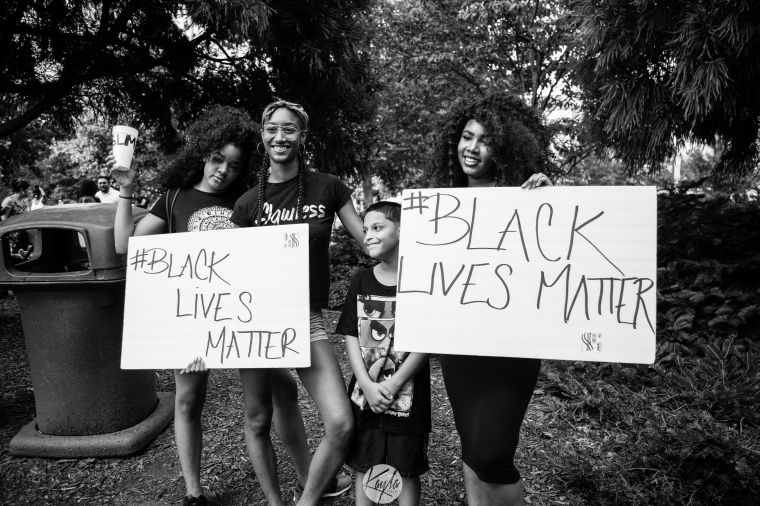 BLM
#BLACK
LIVES
MATTER
#BLACK
LIVES MATTER
flawless
Kayla